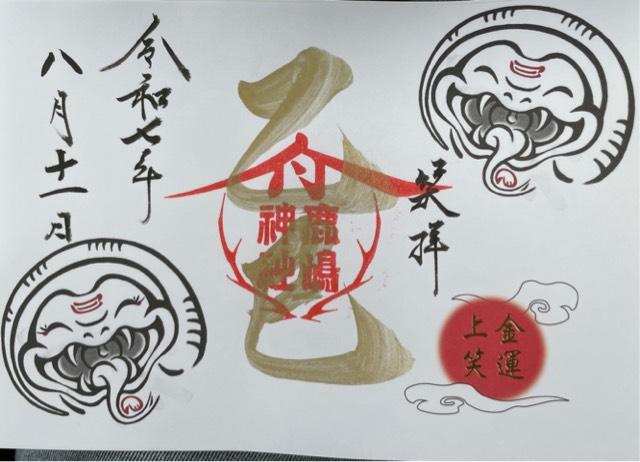 笑拝
金運
上笑
乙巳
舟
鹿嶋
神社
令和七年
八月十一日